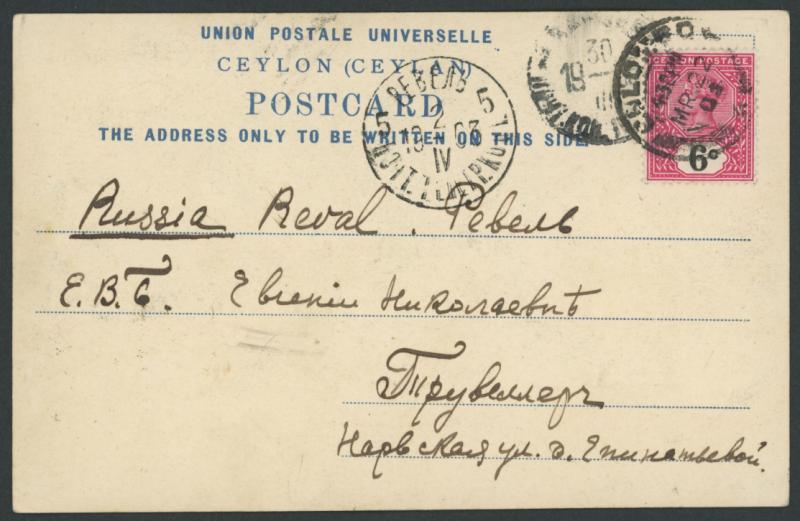 UNION POSTALE UNIVERSELLE
CEYLON (CEYLAN)
POSTCARD
THE ADDRESS ONLY TO BE WRITTEN ON THIS SIDE.
CEYLON POSTAGE
6c
РЕВЕЛЬ
5 5
2
19 03
IV
30
19
III
MR 2
03
Russia Reval. Ревель
Е.В.Б. Евгеніи Николаевнѣ
Трувеллеръ
Нарвская ул. д. Епинатьевой.